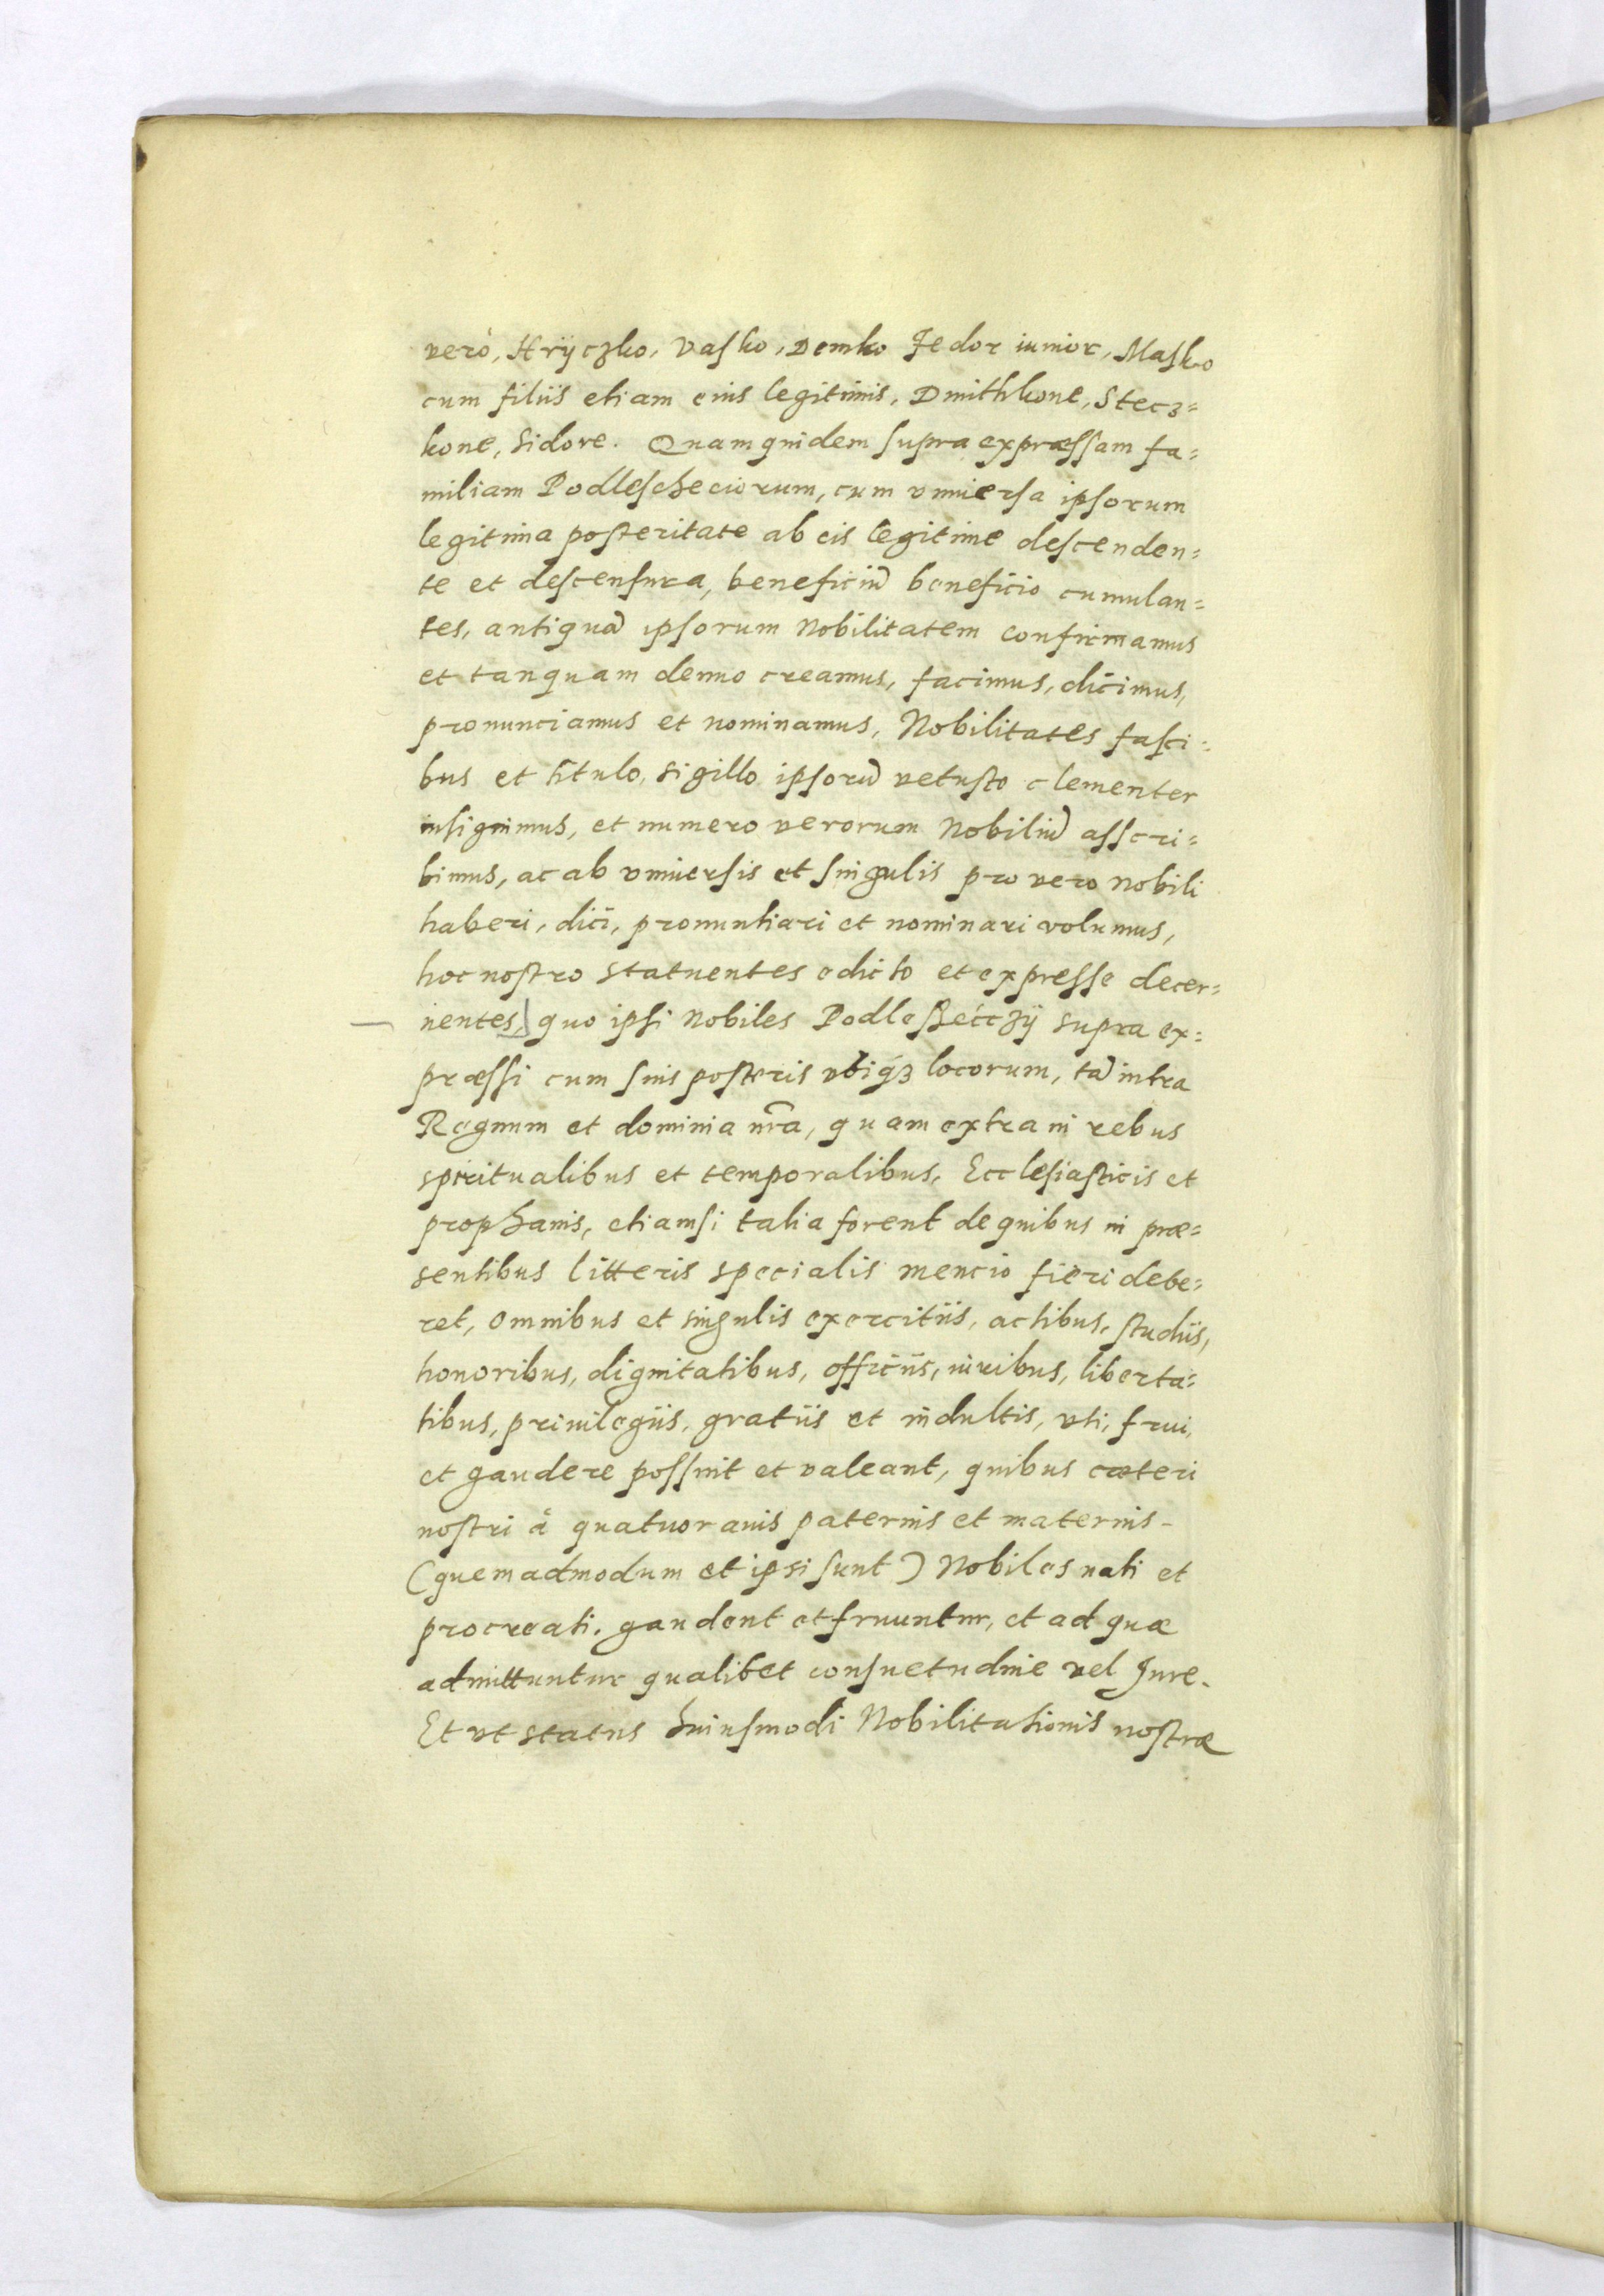 verò, Hrÿczko, Vasko, Demko Fedor iunior, Masko
cum filiis etiam eius legitimis, Dmithkone, Stecz=
kone, Sidore. Quam quidem supra expræssam fa=
miliam Podlescheciorum, cum vniuersa ipsorum
legitima posteritate ab eis legitime descenden=
te et descensura, beneficiũ beneficio cumulan=
tes, antiquã ipsorum Nobilitatem confirmamus
et tanquam denuo creamus, facimus, dicimus,
pronunciamus et nominamus, Nobilitates fasci=
bus et titulo, sigillo ipsorũ vetusto clementer
insignimus, et numero verorum Nobiliũ asscri=
bimus, ac ab vniuersis et singulis pro vero nobili
haberi, dici, pronuntiari et nominari volumus,
hoc nostro statuentes edicto et expresse decer=
nentes, quo ipsi Nobiles Podleßéczÿ supra ex=
præssi cum suis posteris vbiqꝫ locorum, tã intra
Regnum et dominia nr̃a, quam extra in rebus
spiritualibus et temporalibus, Ecclesiasticis et
prophanis, etiamsi talia forent de quibus in præ=
sentibus litteris specialis mencio fieri debe=
ret, omnibus et singulis exercitiis, actibus, studiis,
honoribus, dignitatibus, officiis, iuribus, liberta=
tibus, priuilegiis, gratiis et indultis, vti, frui,
et gaudere possint et valeant, quibus cæteri
nostri à quatuor auis paternis et maternis -
(quemadmodum et ipsi sunt) Nobiles nati et
procreati. gaudent et fruuntur, et ad quæ
admittuntur qualibet consuetudine vel Jure.
Et vt status huiusmodi Nobilitationis nostræ